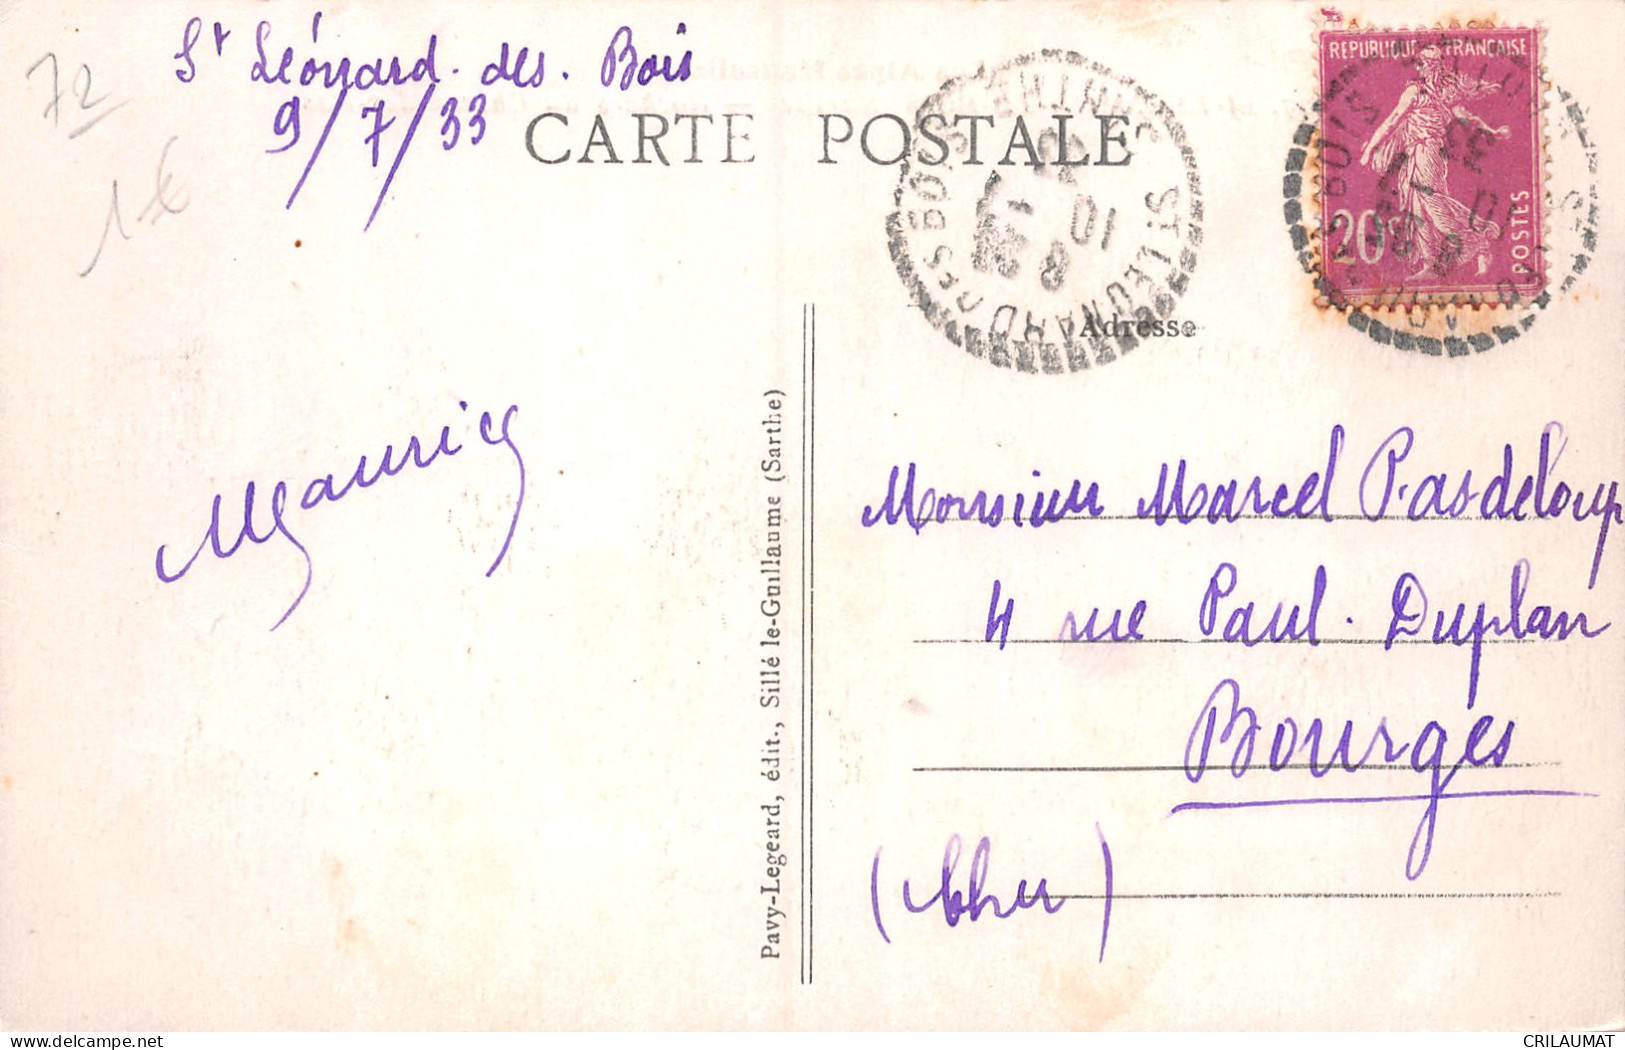 72
1€
St Léonard. des. Bois
9/7/33
CARTE POSTALE
RÉPUBLIQUE FRANÇAISE
20c
POSTES
ST LEONARD DES BOIS SARTHE
8
10 - 7
33
Adresse
Maurice
Pavy-Legeard, édit., Sillé le-Guillaume (Sarthe)
Monsieur Marcel Pasdeloup
4 rue Paul. Duplan
Bourges
(Cher)
CRILAUMAT